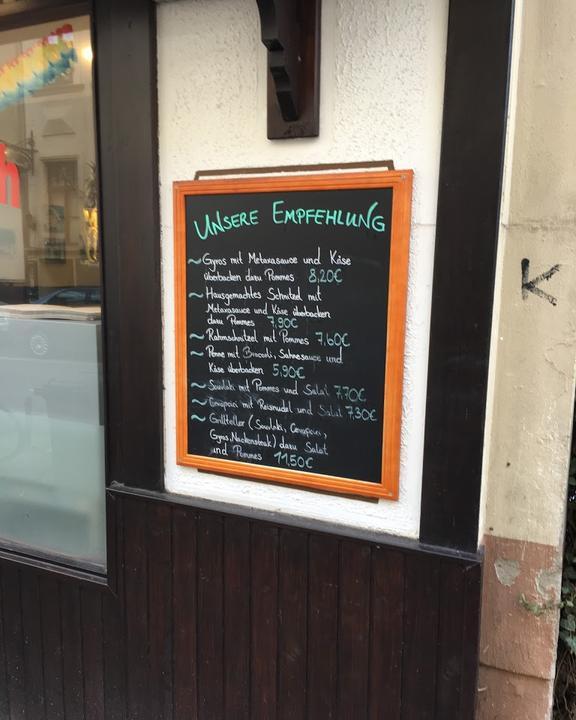 UNSERE EMPFEHLUNG
~ Gyros mit Metaxasauce und Käse
überbacken dazu Pommes 8,20€
~ Hausgemachtes Schnitzel mit
Metaxasauce und Käse überbacken
dazu Pommes 7,90€
~ Rahmschnitzel mit Pommes 7,60€
~ Penne mit Broccoli, Sahnesauce und
Käse überbacken 5,90€
~ Souvlaki mit Pommes und Salat 7,70€
~ mit Reisnudel und Salat 7,30€
~ Grillteller (Souvlaki,
Gyros, Nackensteak) dazu Salat
und Pommes 11,50€
h
K